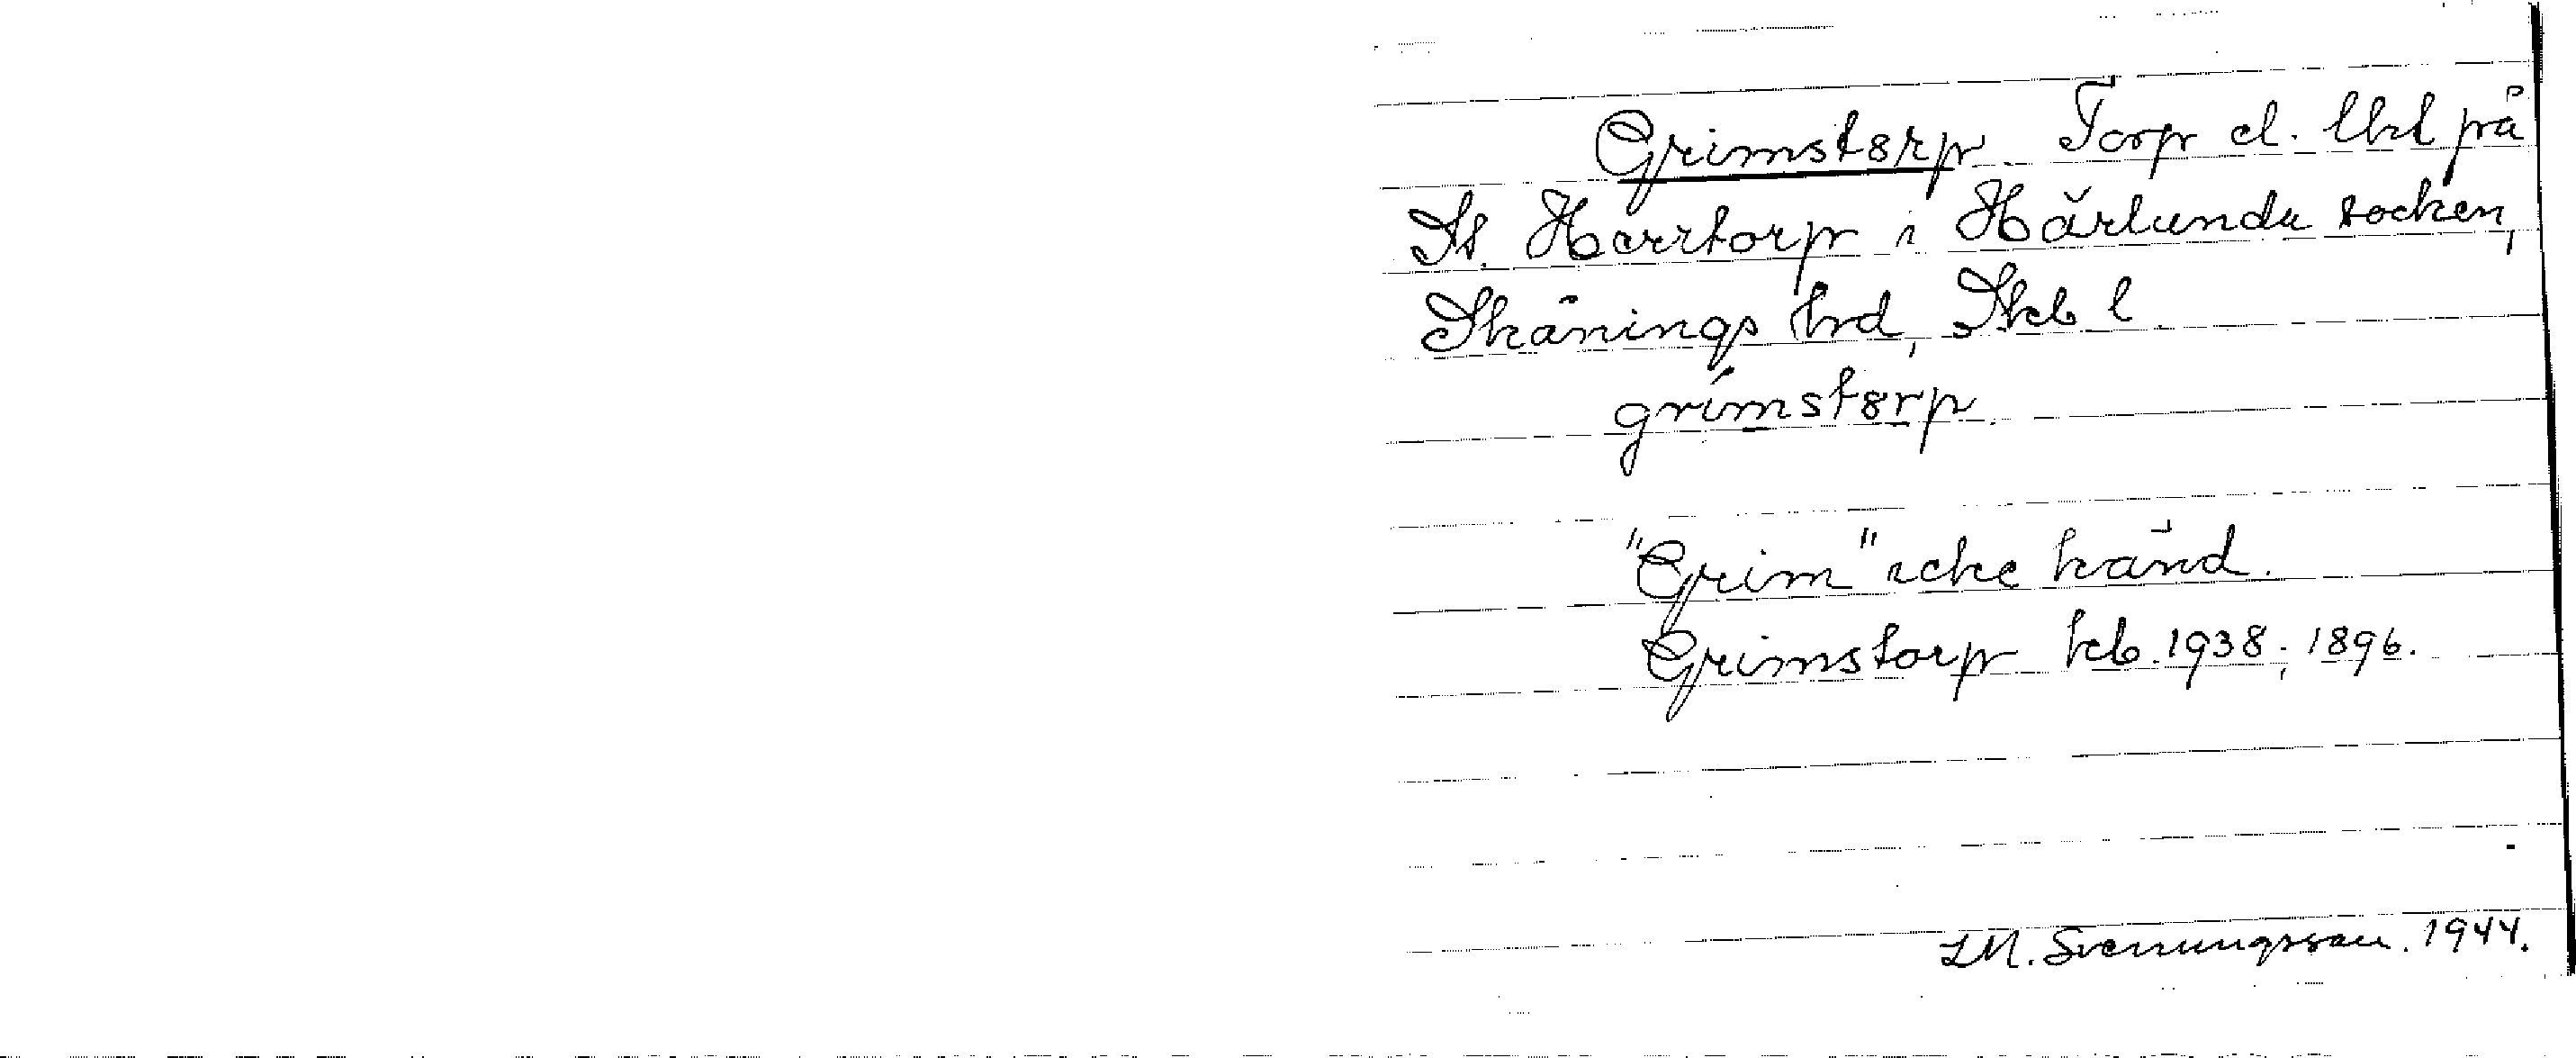 Grimstorp Torp el. lht på
St. Harrtorp i Härlunda socken,
Skånings hrd, Skb l
grimstørp
"Grim" icke känd.
Grimstorp kb 1938; 1896.
I M. Svenungsson. 1944.